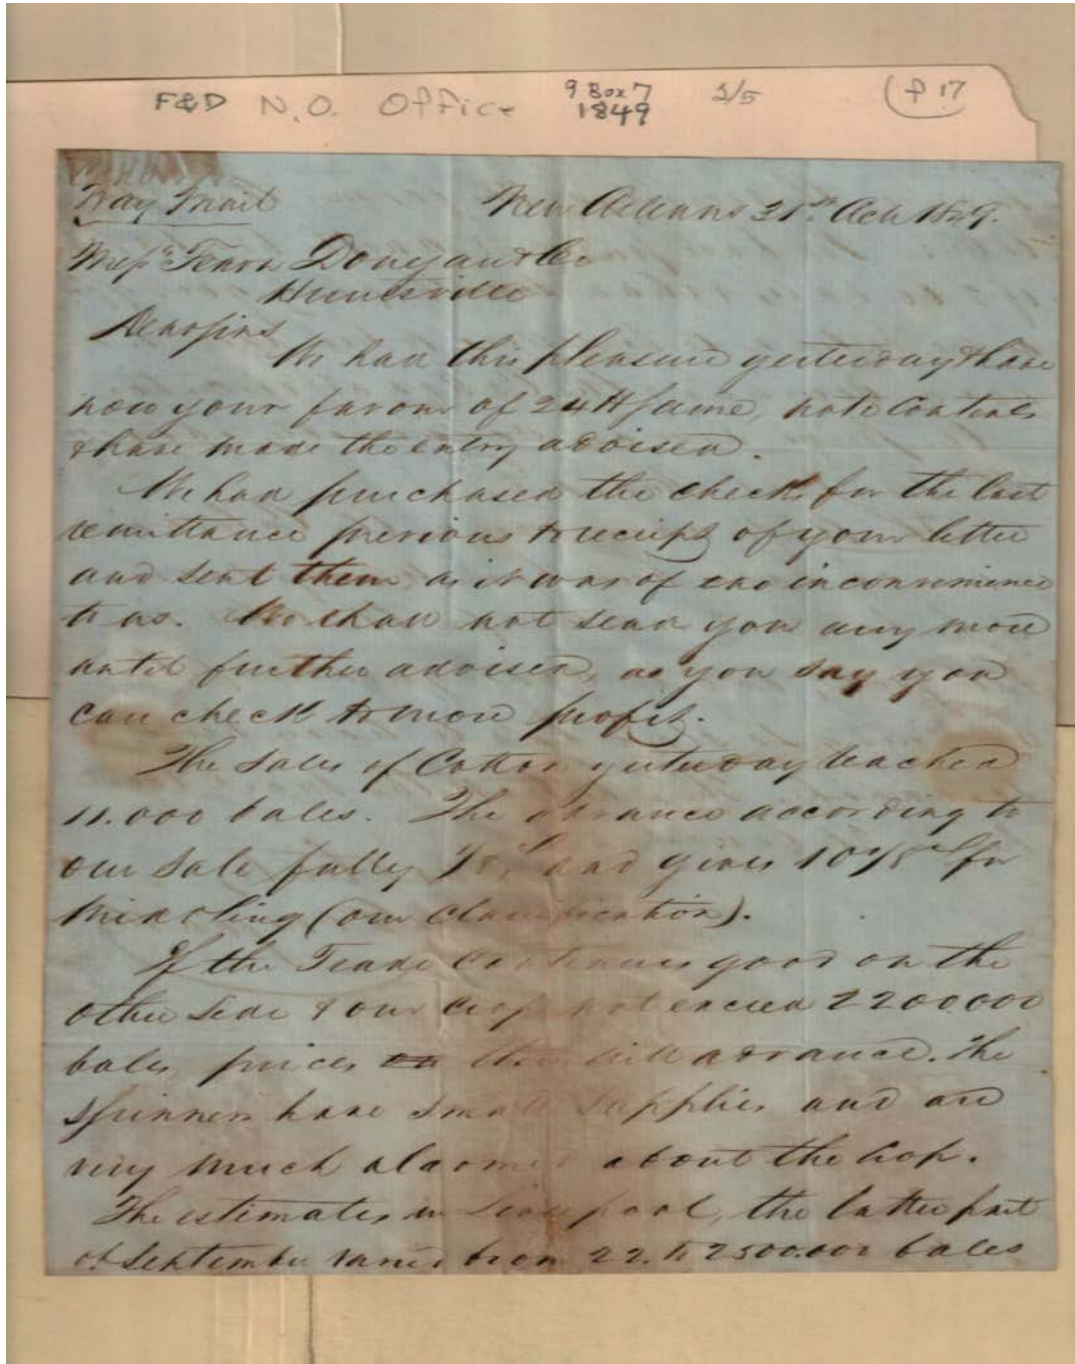 F&D N.O. Office 9 Box 7 1849 2/5 (f 17
Way Mail
New Orleans 31st Oct 1849.
Messrs Fearn Donegan & Co
Huntsville
Dear Sirs
We had this pleasure yesterday & have
now your favour of 24th same, note contents
& have made the entry advised.
We had purchased the checks for the last
remittance previous to receipt of your letter
and sent them, as it was of no inconvenience
to us. We shall not send you any more
until further advised, as you say you
can check to more profit.
The sales of Cotton yesterday reached
11.000 bales. The advance according to
our sale fully 1/8 and gives 10 for
Middling (our Classification).
If the Trade continues good on the
other side & our crop not exceed 2200000
bales prices will advance. The
Spinners have small supplies and are
very much alarmed about the crop.
The estimates in Liverpool, the latter part
of September varied from 22. to 2500.000 bales